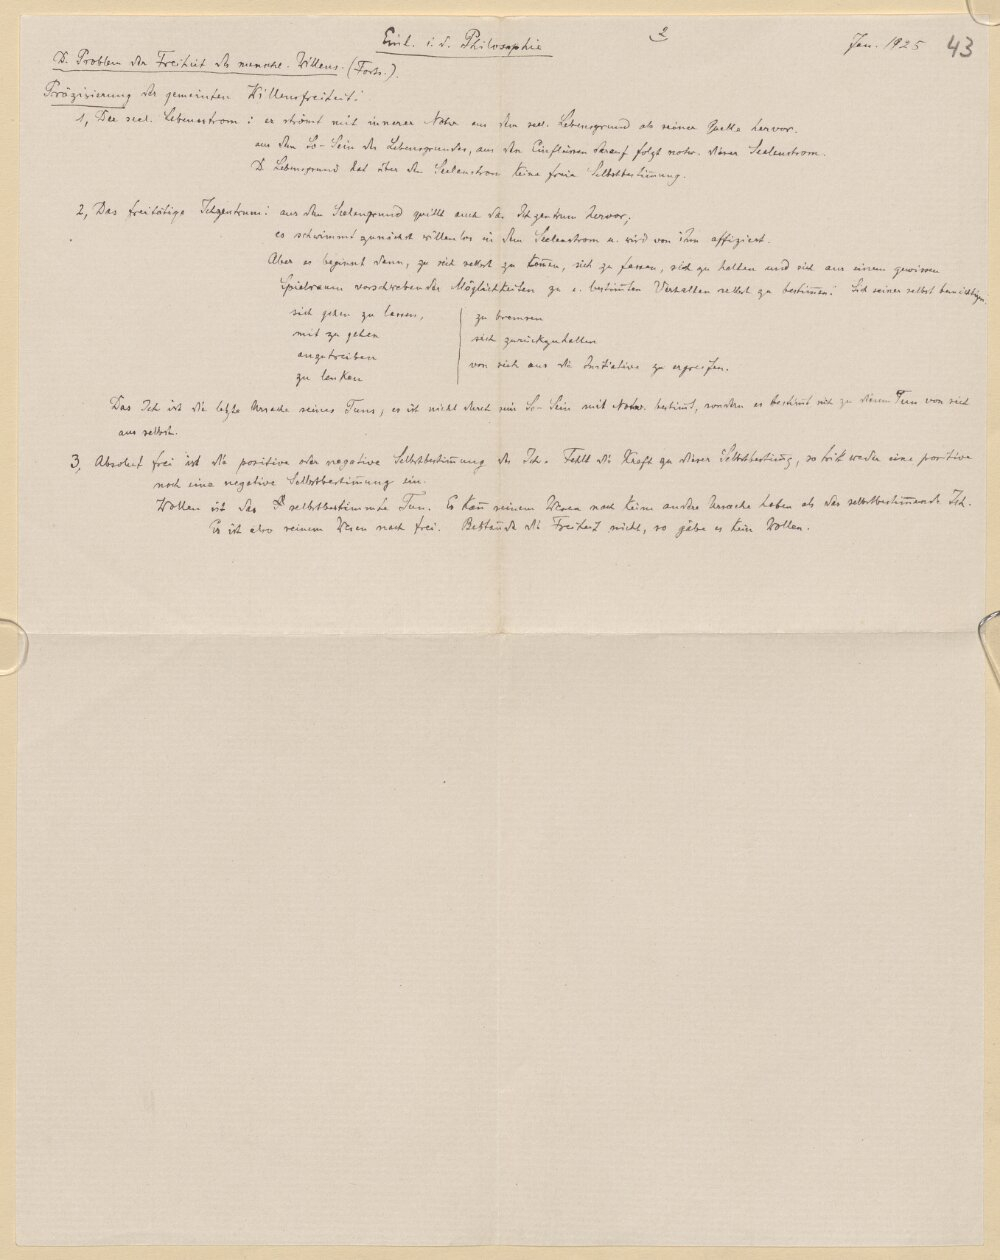 Einl. i. d. Philosophie 2 Jan. 1925 43
D. Problem der Freiheit des menschl. Willens. (Forts.).
Präzisierung der gemeinten Willensfreiheit:
1, Der seel. Lebensstrom: er strömt mit innerer Notw. aus dem seel. Lebensgrund als seiner Quelle hervor.
aus dem So-Sein des Lebensgrundes, aus den Einflüssen darauf folgt notw. dieser Seelenstrom.
D. Lebensgrund hat über den Seelenstrom keine freie Selbstbestim̅ung.
2, Das freitätige Ichzentrum: aus dem Seelengrund quillt auch das Ichzentrum hervor;
es schwimmt zunächst willenlos in dem Seelenstrom u. wird von ihm affiziert.
Aber es beginnt dann, zu sich selbst zu kom̅en, sich zu fassen, sich zu halten und sich aus einem gewissen
Spielraum vorschwebender Möglichkeiten zu e. bestim̅ten Verhalten selbst zu bestim̅en: Sich seiner selbst bemächtigen.
sich gehen zu lassen, | zu bremsen
mit zu gehen | sich zurückzuhalten
anzutreiben | von sich aus die Initiative zu ergreifen.
zu lenken
Das Ich ist die letzte Ursache seines Tuns, es ist nicht durch sein So-Sein mit Notw. bestim̅t, sondern es bestim̅t sich zu diesem Tun von sich
aus selbst.
3, Absolut frei ist die positive oder negative Selbstbestim̅ung des Ich. Fehlt die Kraft zu dieser Selbstbestim̅g, so tritt weder eine positive
noch eine negative Selbstbestim̅ung ein.
Wollen ist das selbstbestimmte Tun. Es kan̅ seinem Wesen nach keine andere Ursache haben als das selbstbestim̅ende Ich.
Es ist also seinem Wesen nach frei. Bestände die Freiheit nicht, so gäbe es kein Wollen.